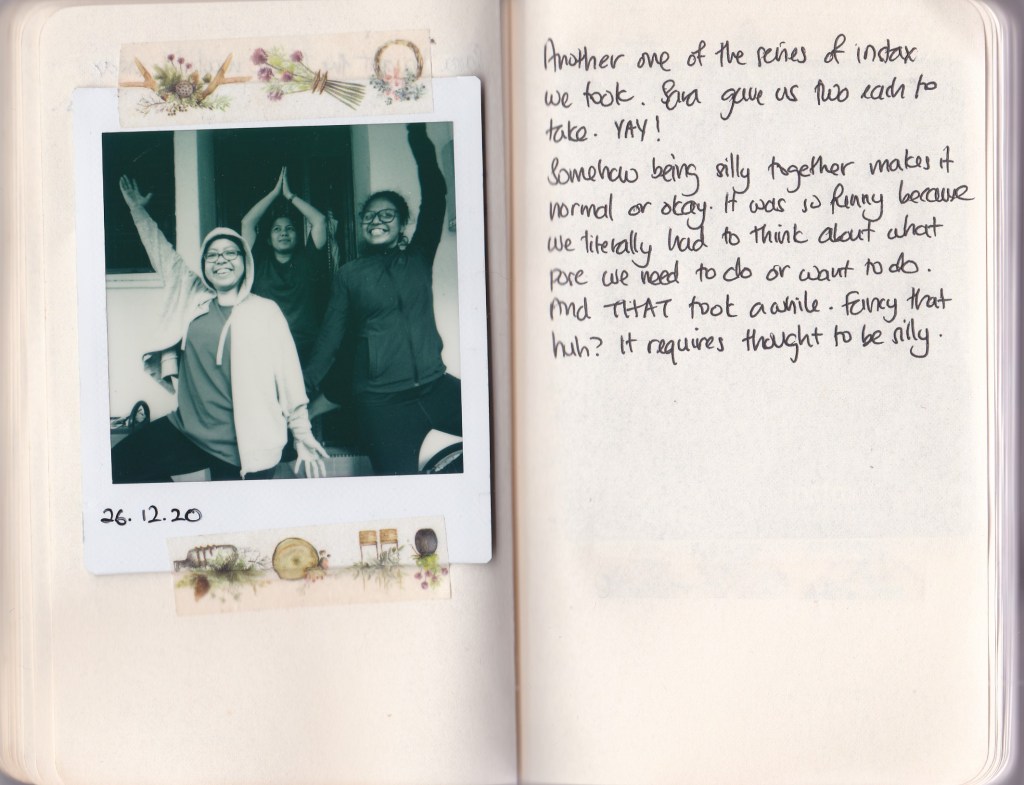 26.12.20
Another one of the series of instax
we took. Sara gave us two each to
take. YAY!
Somehow being silly together makes it
normal or okay. It was so funny because
we literally had to think about what
pose we need to do or want to do.
And THAT took a while. Fancy that
huh? It requires thought to be silly.